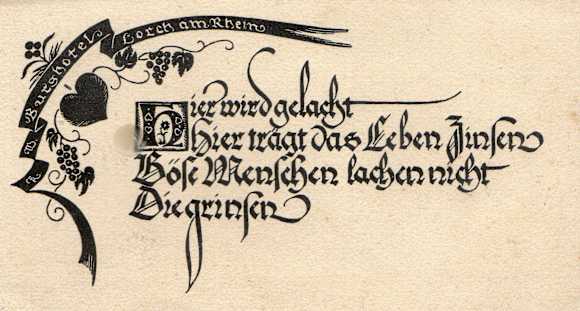 Burghotel Lorch am Rhein
Hier wird gelacht
hier trägt das Leben Zinsen
Böse Menschen lachen nicht
Die grinsen